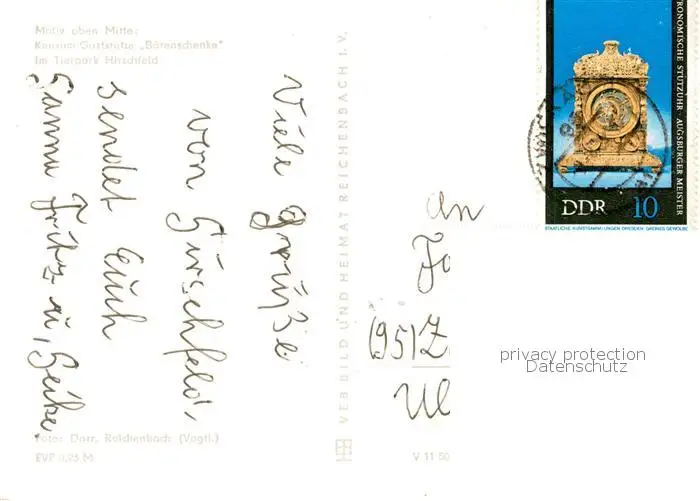 Motiv oben Mitte:
Konsum-Gaststätte „Bärenschenke"
im Tierpark Hirschfeld
Viele Grüße
von Hirschfeld,
sendet Euch
Fritz u,
VEB BILD UND HEIMAT REICHENBACH I. V.
Foto: Darr, Reichenbach (Vogtl.)
EVP 0,25 M
V 11 50
An
(95) Z
ASTRONOMISCHE STUTZUHR · AUGSBURGER MEISTER
DDR 10
STAATLICHE KUNSTSAMMLUNGEN DRESDEN GRÜNES GEWÖLBE
privacy protection
Datenschutz